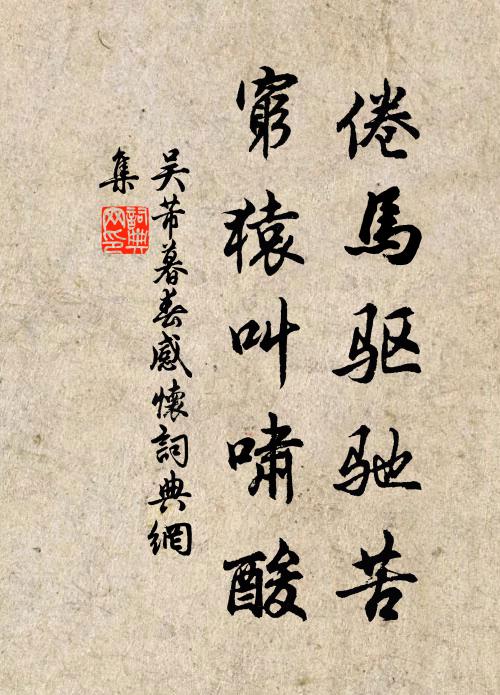 倦馬驱驰苦
窮猿叫啸酸
吴芾暮春感懷詞典網
集
詞典
网印